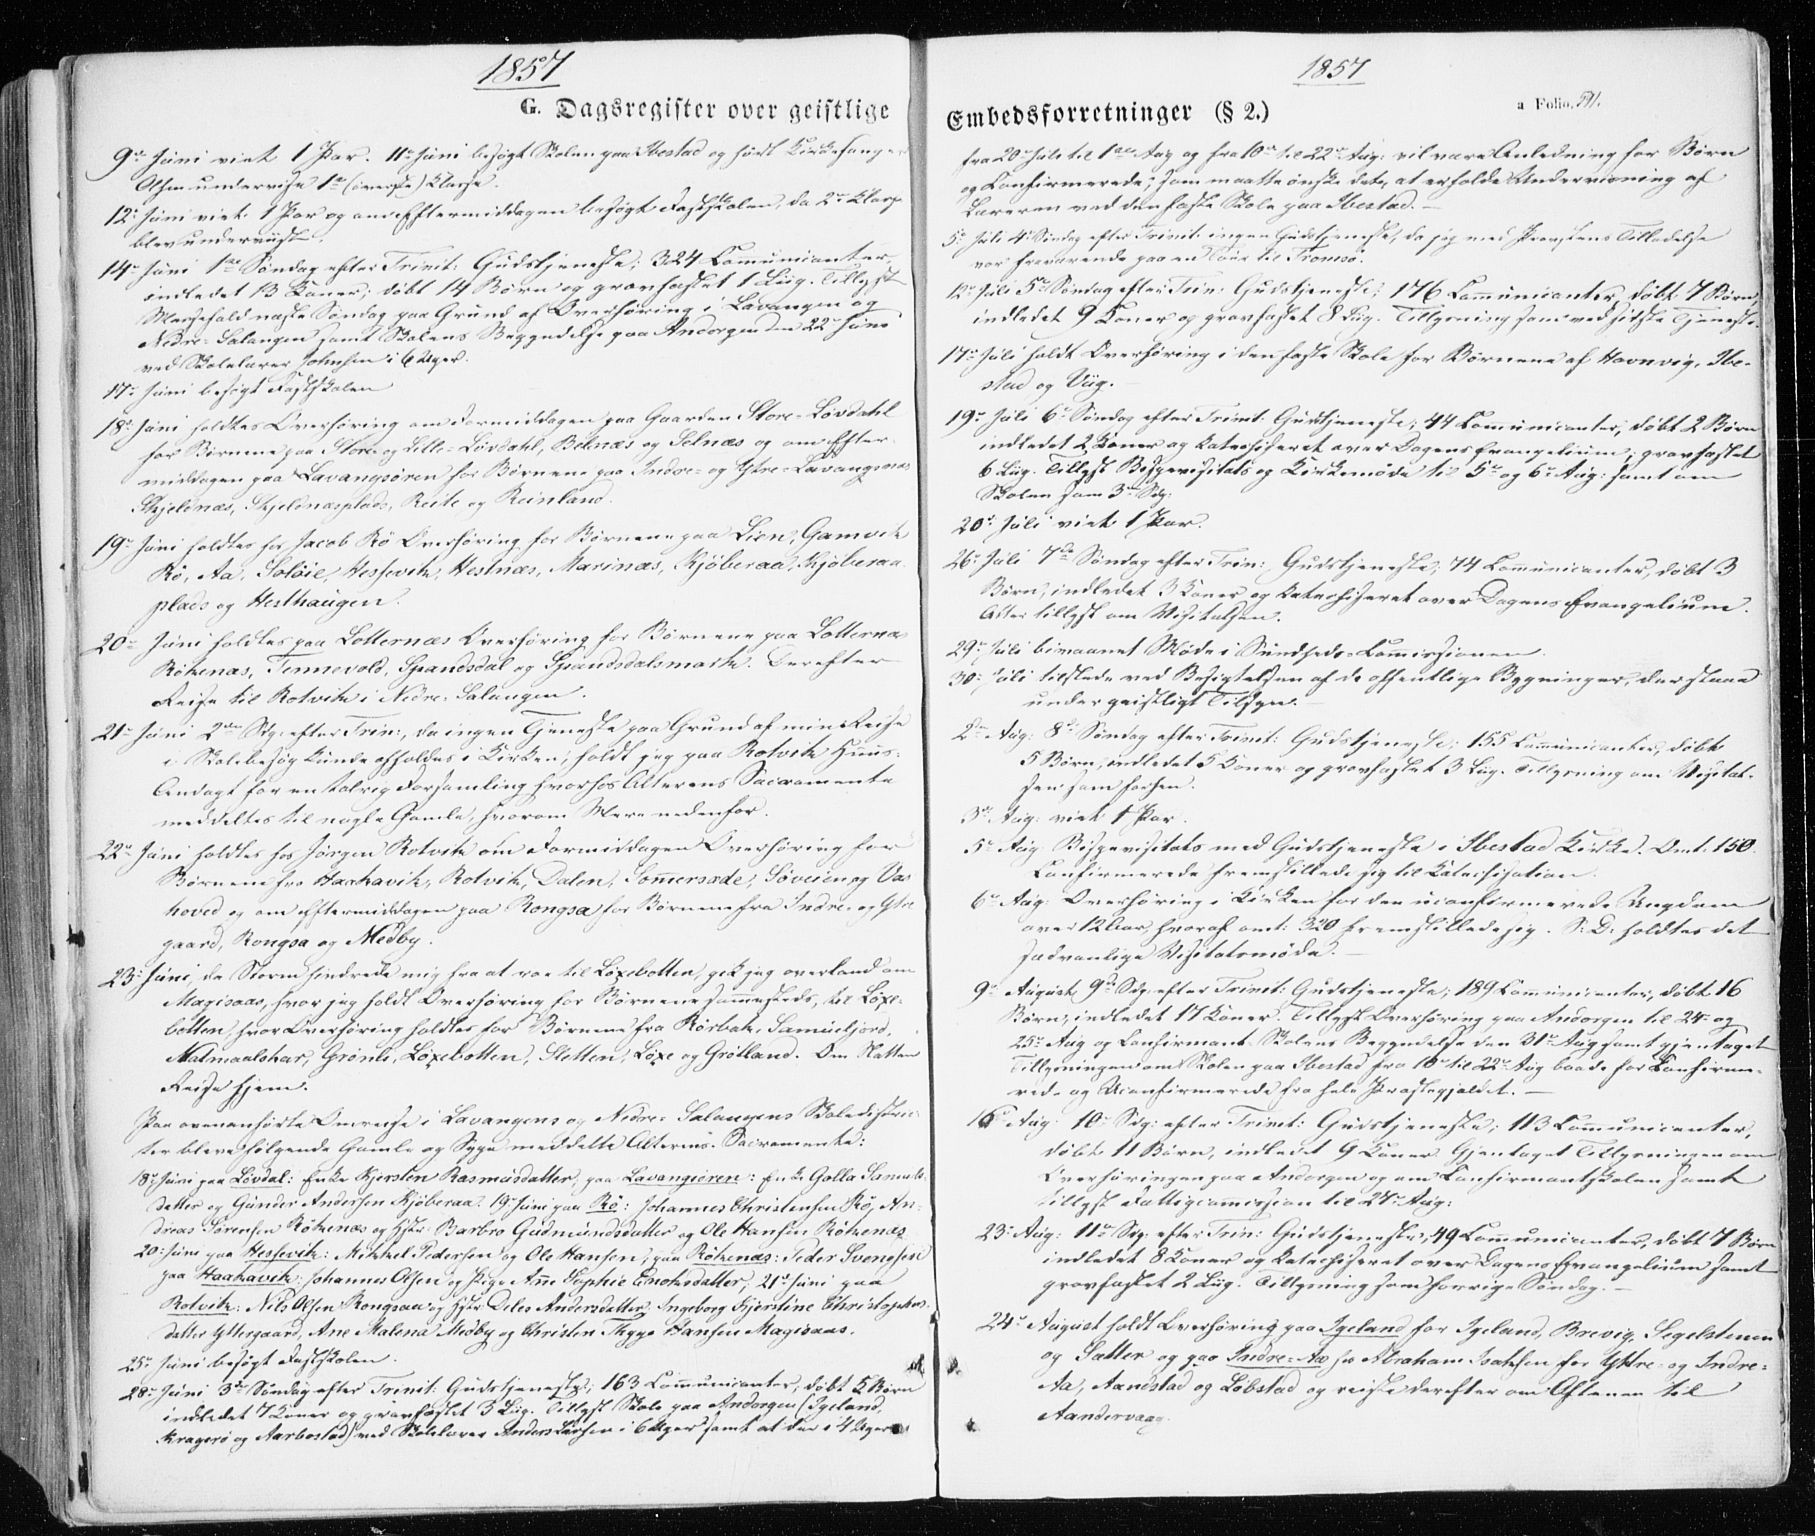 1857
G. Dagsregister over geistlige
9de Juni viet 1 Par. 11te Juni besøgt Skolen paa Ibestad og hørt Kirkesanger
Olsen undervise 1ste (øverste) Klasse.
12te Juni viet 1 Par og om Eftermiddagen besøgt Fastskolen, da 2den Klasse
blev underviist.
14de Juni 1ste Søndag efter Trinit: Gudstjeneste; 324 Comunicanter,
indledet 13 Koner; døbt 14 Børn og gravfæstet 1 Liig. Tillyst
Messefald næste Søndag paa Grund af Overhøring i Lavangen og
Nedre-Salangen samt Skolens Begyndelse paa Andorgen den 22de Juni
ved Skolelærer Johnsen i 6 Uger.
17de Juni besøgt Fastskolen
18de Juni holdtes Overhøring om Formiddagen paa Gaarden Store-Løvdahl
for Børnene paa Store- og Lille-Løvdahl, Bolnæs og Selnæs og om Efter-
middagen paa Lavangsøren for Børnene paa Indre- og Ytre-Lavangsnæs
Skjelnæs, Skjelnæsplads, Reite og Reinland.
19de Juni holdtes hos Jacob Rø Overhøring for Børnene paa Lien, Gamvik
Rø, Aa, Soløie, Hessevik, Hestnæs, Marinæs, Kjøberaa, Kjøberaa
plads og Hesthaugen.
20de Juni holdtes paa Lotternæs Overhøring for Børnene paa Lotternæs
Røkenæs, Tennevold, Spandsdal og Spandsdalsmark. Derefter
Reise til Rotvik i Nedre-Salangen.
21de Juni 2den Sdg: efter Trin:, da ingen Tjeneste paa Grund af min Reise
i Skolebesøg kunde afholdes i Kirken, holdt jeg paa Rotvik Huus-
Andagt for en talrig Forsamling hvorhos Alterens Sacramente
meddeltes til nogle Gamle, hvorom Mere nedenfor.
22de Juni holdtes hos Jørgen Rotvik om Formiddagen Overhøring for
Børnene fra Haakavik, Rotvik, Dalen, Sommersæde, Søveien og Vas
hoved og om Eftermiddagen paa Rongsa for Børnene fra Indre- og Ytre
gaard, Rongsa og Medby.
23de Juni, da Storm hindrede mig fra at roe til Løxebotten, gik jeg overland om
Magisaas, hvor jeg holdt Overhøring for Børnene sammesteds, til Løxe-
botten, hvor Overhøring holdtes for Børnene fra Rørbak, Samuelfjord,
Melmaalshar, Grønli, Løxebotten, Sletten, Løxe og Grøtland. Om Natten
Reise hjem.
Paa ovenanførte Omreise i Lavangens og Nedre-Salangens Skoledistric-
ter bleve følgende Gamle og Syge meddelte Alterens Sacramente:
18de Juni paa Løvdal: Enke Kjersten Rasmusdatter, paa Lavangsøren: Enke Golla Samuels
datter og Gunder Andersen Kjøberaa. 19de Juni paa Rø: Johannes Christensen Rø, An-
dreas Sørensen Røkenæs og Hstr: Barbro Gudmundsdatter og Ole Hansen Røkenæs
20de Juni paa Hessevik: Mikkel Pedersen og Ole Hansen, paa Røkenæs: Peder Svensen
paa Haakavik: Johannes Olsen og Pige Ane Sophie Enoksdatter; 21de Juni paa
Rotvik: Nils Olsen Rongsaa og Hstr Deles Andersdatter, Ingeborg Kjerstine Christophers
datter Yttergaard, Ane Malena Medby og Christen Thygo Hansen Magisaas.
25de Juni besøgt Fastskolen.
28de Juni 3die Søndag efter Trinit: Gudstjeneste; 163 Communicanter, døbt 5 Børn
indledet 7 Koner og gravfæstet 3 Liig. Tillyst Skole paa Andorgen (Igeland,
Kragerø og Aarbostad) ved Skolelærer Anders Larsen i 6 Uger samt at der i 4 Uger
1857
Embedsforretninger (§ 2.)
a Folio. 591.
fra 20de Juli til 1ste Aug og fra 10de til 22de Aug: vil være Anledning for Børn
og Confirmerede, som maatte ønske det, at erholde Undervisning af
Læreren ved den faste Skole paa Ibestad. —
5te Juli 4de Søndag efter Trinit: ingen Gudstjeneste, da jeg med Provstens Tilladelse
var fraværende paa en Tour til Tromsø.
12te Juli 5te Søndag efter Trin: Gudstjeneste; 176 Communicanter, døbt 7 Børn,
indledet 9 Koner og gravfæstet 8 Liig. Tillysning som ved sidste Tjeneste.
17de Juli holdt Overhøring i den faste Skole for Børnene af Havnvig, Ibe-
stad og Viig. —
19de Juli 6te Søndag efter Trinit: Gudstjeneste; 44 Communicanter, døbt 2 Børn
indledet 2 Koner og katechiseret over Dagens Evangelium; gravfæstet
6 Liig. Tillyst Bispevisitats og Kirkemøde til 5te og 6te Aug: samt om
Skolen som 3die Sdg:
20de Juli viet 1 Par.
26de Juli 7de Søndag efter Trin: Gudstjeneste; 74 Communicanter, døbt 3
Børn, indledet 3 Koner og katechiseret over Dagens Evangelium.
Atter tillyst om Visitatsen.
29de Juli bivaanet Møde i Sundheds-Commissionen.
30te Juli tilstede ved Besigtelsen af de offentlige Bygninger, der staae
under geistligt Tilsyn. —
2den Aug: 8de Søndag efter Trinit: Gudstjeneste; 155 Communicanter, døbt
5 Børn, indledet 5 Koner og gravfæstet 3 Liig. Tillysning om Visitat-
sen som forhen.
3die Aug: viet 1 Par.
5te Aug Bispevisitats med Gudstjeneste i Ibestad Kirke. Omt: 150
Confirmerede fremstillede sig til Katechisation.
6te Aug: Overhøring i Kirken for den uconfirmerede Ungdom
over 12 Aar, hvoraf omt: 320 fremstillede sig. S: D: holdtes det
sædvanlige Visitatsmøde. —
9de August 9de Sdg: efter Trinit: Gudstjeneste; 189 Communicanter, døbt 16
Børn, indledet 17 Koner. Tillyst Overhøring paa Andorgen til 24de og
25de Aug og Confirmant-Skolens Begyndelse den 31te Aug samt gjentaget
Tillysningen om Skolen paa Ibestad fra 10de til 22de Aug baade for Confirme-
rede og Uconfirmerede fra hele Præstegjeldet. —
16de Aug: 10de Sdg: efter Trinit: Gudstjeneste; 113 Communicanter,
døbt 11 Børn, indledet 9 Koner. Gjentaget Tillysningen om
Overhøringen paa Andorgen og om Confirmantskolen samt
tillyst Fattigcommission til 27de Aug:
23de Aug: 11te Sdg: efter Trin: Gudstjeneste; 49 Communicanter, døbt 7 Børn
indledet 8 Koner og katechiseret over Dagens Evangelium samt
gravfæstet 2 Liig. Tillysning som forrige Søndag. —
24de August holdt Overhøring paa Igeland for Igeland, Brevig, Segelstenen
og Satter og paa Indre-Aa hos Abraham Isaksen for Yttre- og Indre-
Aa, Aandstad og Løbstad og reiste derefter om Aftenen til
Aandervaag.